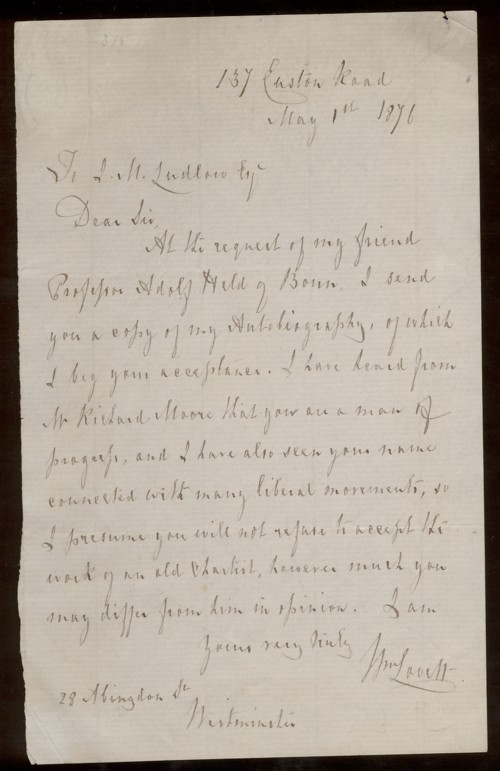 137 Euston Road
May 1st 1876
To J. M. Ludlow Esq
Dear Sir,
At the request of my friend
Professor Adolf Held of Bonn, I send
you a copy of my Autobiography, of which
I beg your acceptance. I have heard from
Mr Richard Moore that you are a man of
progress, and I have also seen your name
connected with many liberal movements, so
I presume you will not refuse to accept the
work of an old Chartist, however much you
may differ from him in opinion. I am
Yours very truly
Wm Lovett.
28 Abingdon St
Westminster